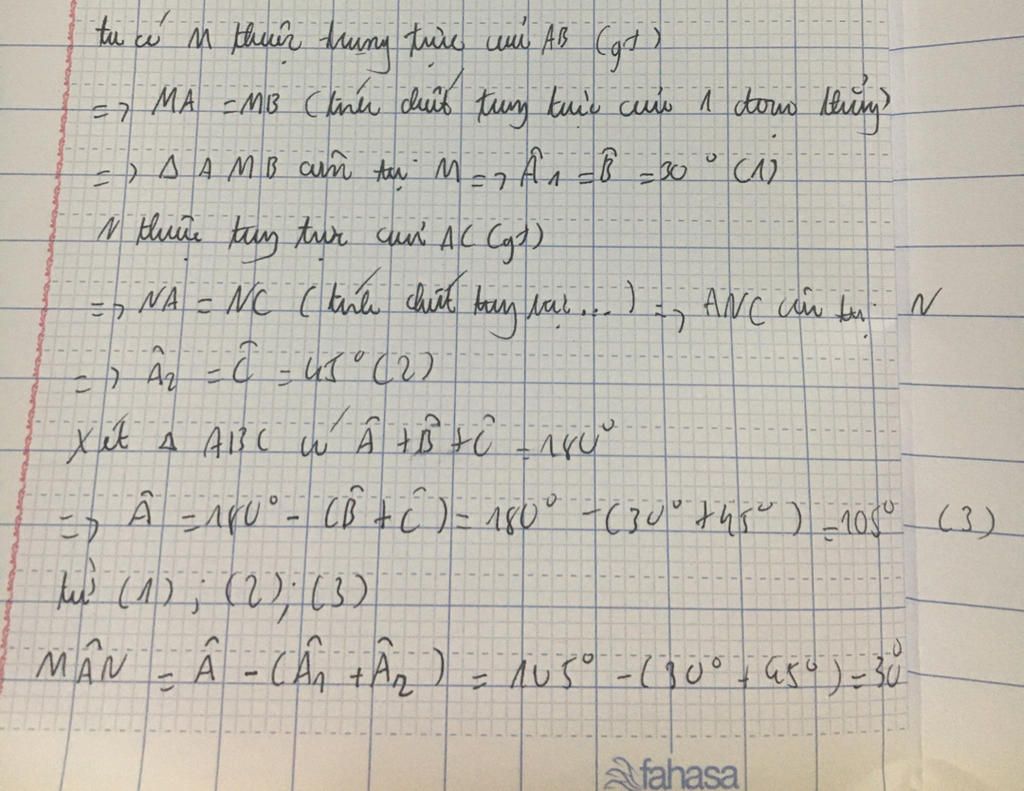 ta có M thuộc trung trực của AB (gt)
=> MA = MB (tính chất trung trực của 1 đoạn thẳng)
=> Δ AMB cân tại M => Â1 = B̂ = 30° (1)
N thuộc trung trực của AC (gt)
=> NA = NC (tính chất trung trực...) => ANC cân tại N
=> Â2 = Ĉ = 45° (2)
Xét Δ ABC có Â + B̂ + Ĉ = 180°
=> Â = 180° - (B̂ + Ĉ) = 180° - (30° + 45°) = 105° (3)
từ (1); (2); (3)
MÂN = Â - (Â1 + Â2) = 105° - (30° + 45°) = 30°
fahasa